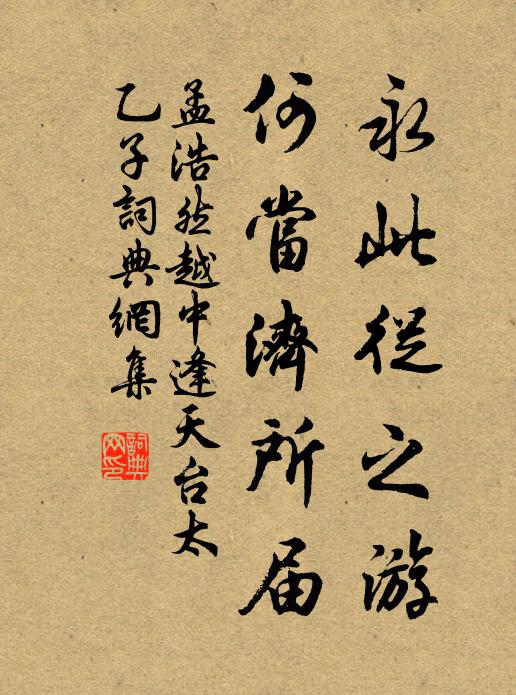 永此從之游
何當濟所届
孟浩然越中逢天台太
乙子詞典網集
詞典
网印